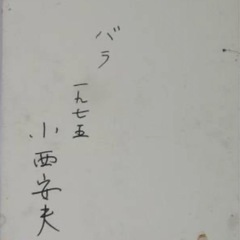 バラ
一九七五
小西安夫